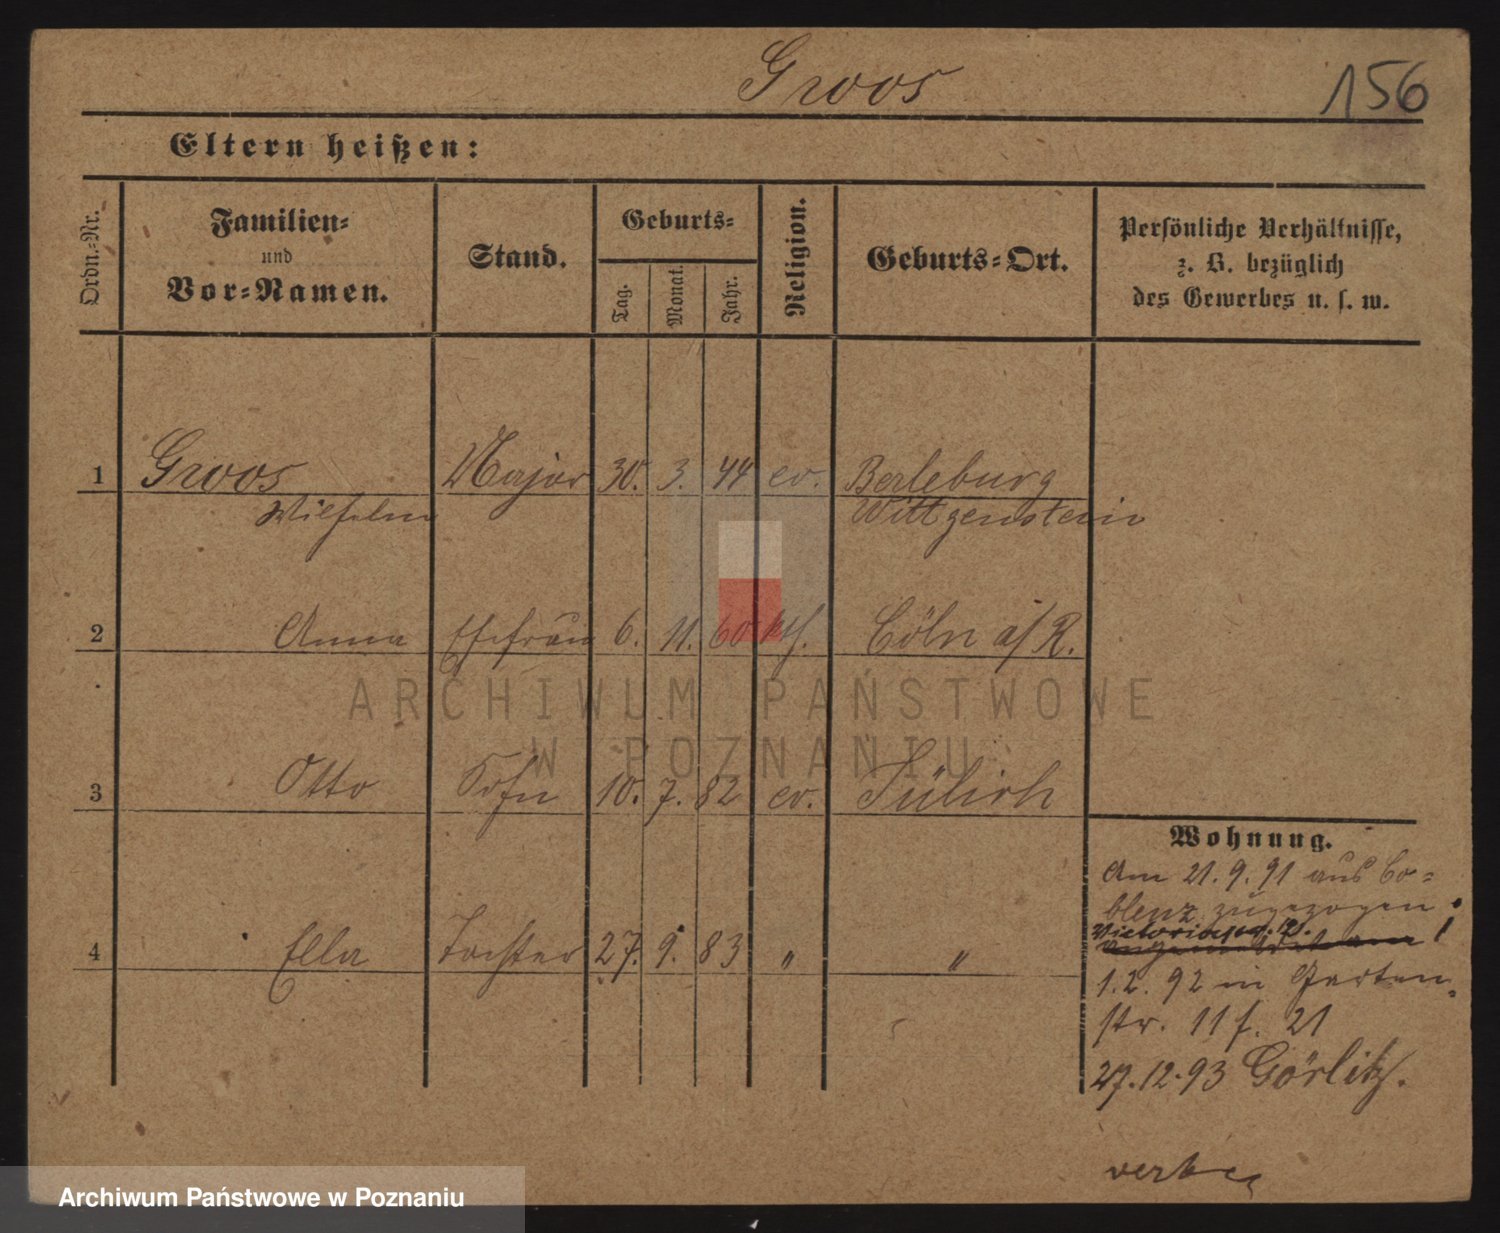 Groos
156
Eltern heißen:
Ordn.-Nr.
Familien-
und
Vor-Namen.
Stand.
Geburts-
Tag.
Monat.
Jahr.
Religion.
Geburts-Ort.
Persönliche Verhältnisse,
z. B. bezüglich
des Gewerbes u. s. w.
1 Groos Major 30. 3. 44 ev. Berleburg
Wilhelm Wittgenstein
2 Anna Ehefrau 6. 11. 60 kth. Cöln a/R.
3 Otto Sohn 10. 7. 82 ev. Jülich
4 Ella Tochter 27. 9. 83 " "
Wohnung.
Am 21. 9. 91 aus Co-
blenz zugezogen
1. 2. 92 in Garten
str. 11 f. 21
27. 12. 93 Görlitz.
ARCHIWUM PAŃSTWOWE
W POZNANIU
Archiwum Państwowe w Poznaniu